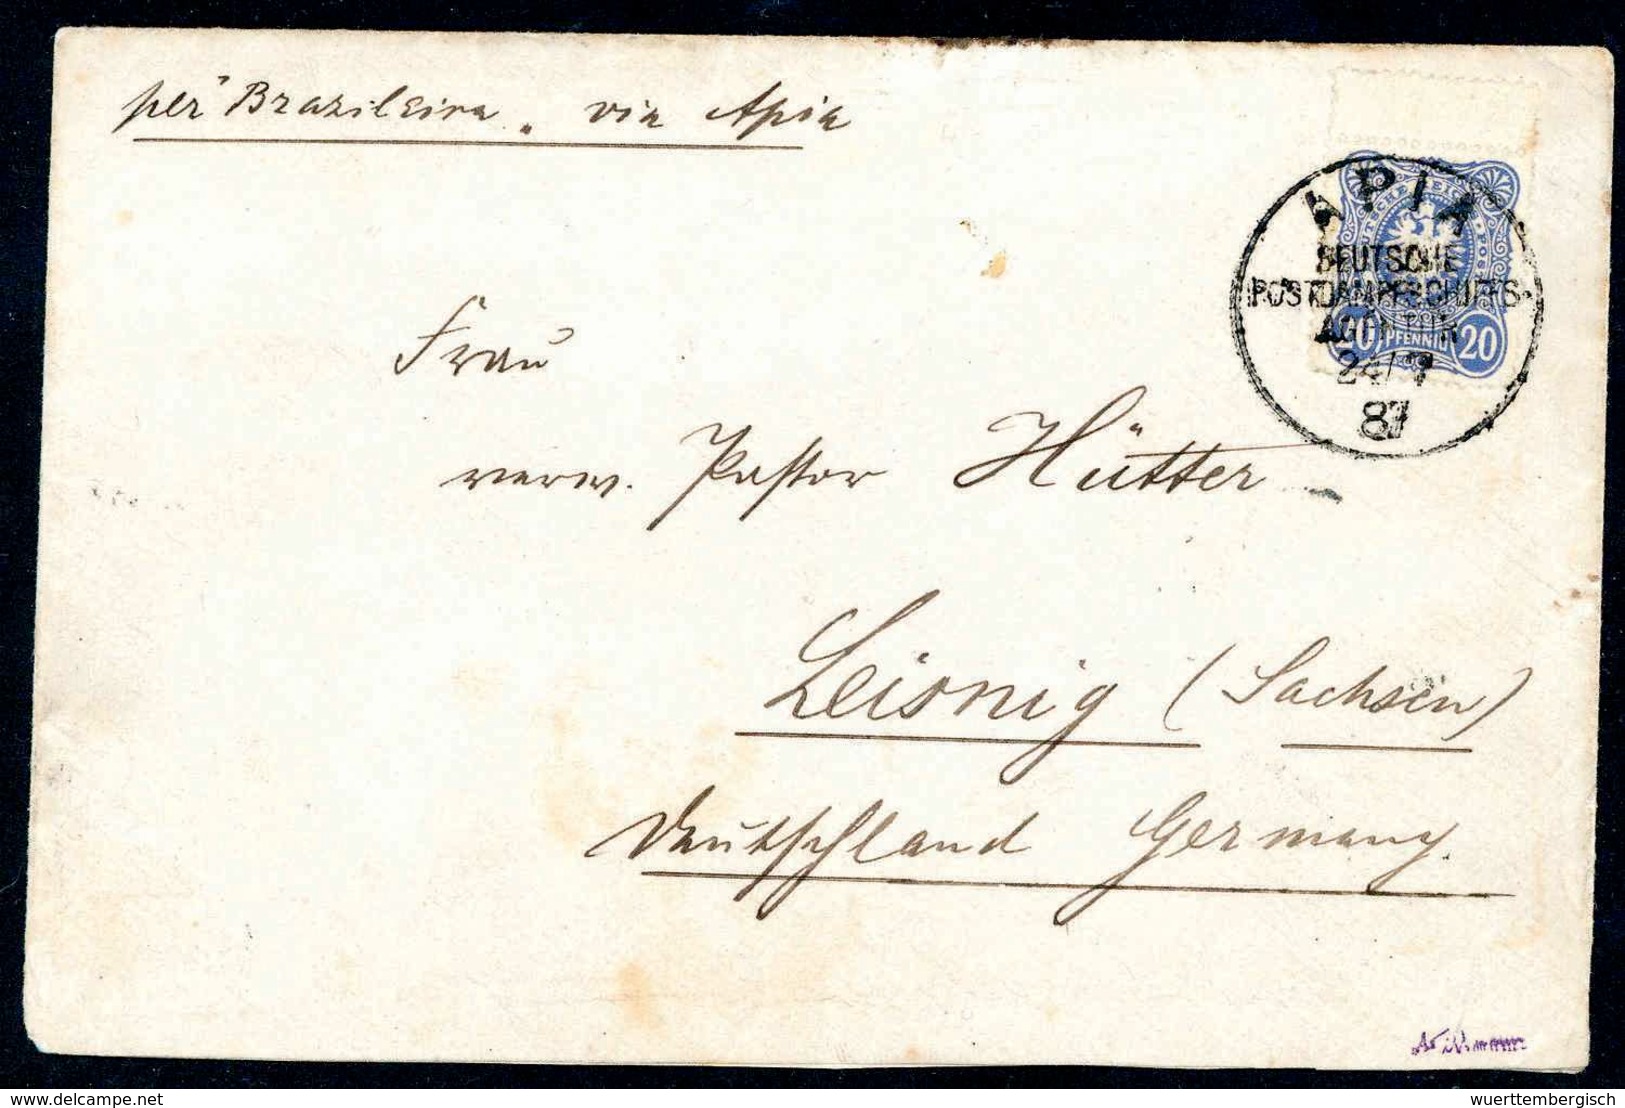 per "Brazileira" via Apia
APIA
DEUTSCHE REICHS-POST
DEUTSCHE
POSTDAMPFSCHIFFS-
AGENTUR
20 PFENNIG 20
24/7
87
Frau
verw. Pastor Hütter
Leisnig (Sachsen)
Deutschland Germany.
www.delcampe.net
wuerttembergisch